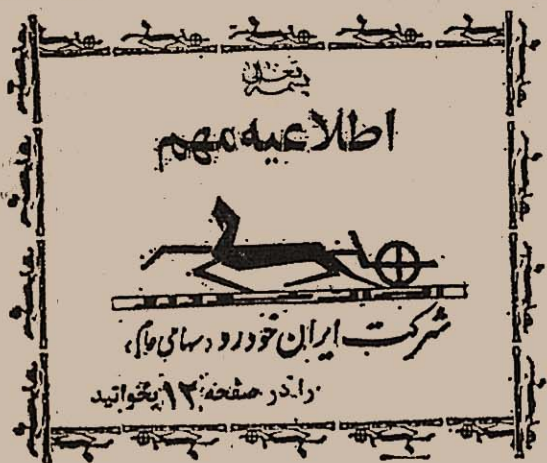 بسمه تعالی
اطلاعیه مهم
شرکت ایران خودرو «سهامی عام»
را در صفحه ۱۲ بخوانید